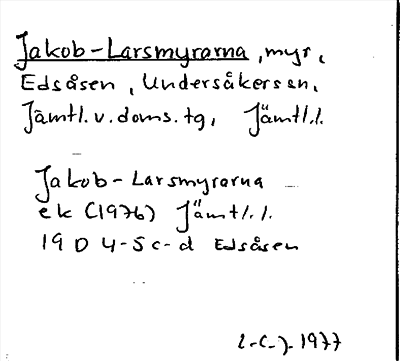 Jakob-Larsmyrarna, myr,
Edsåsen, Undersåkers sn,
Jämtl. v. doms. tg, Jämtl.l.
Jakob-Larsmyrarna
ek (1976) Jämtl.l.
19 D 4-5 c-d Edsåsen
1977